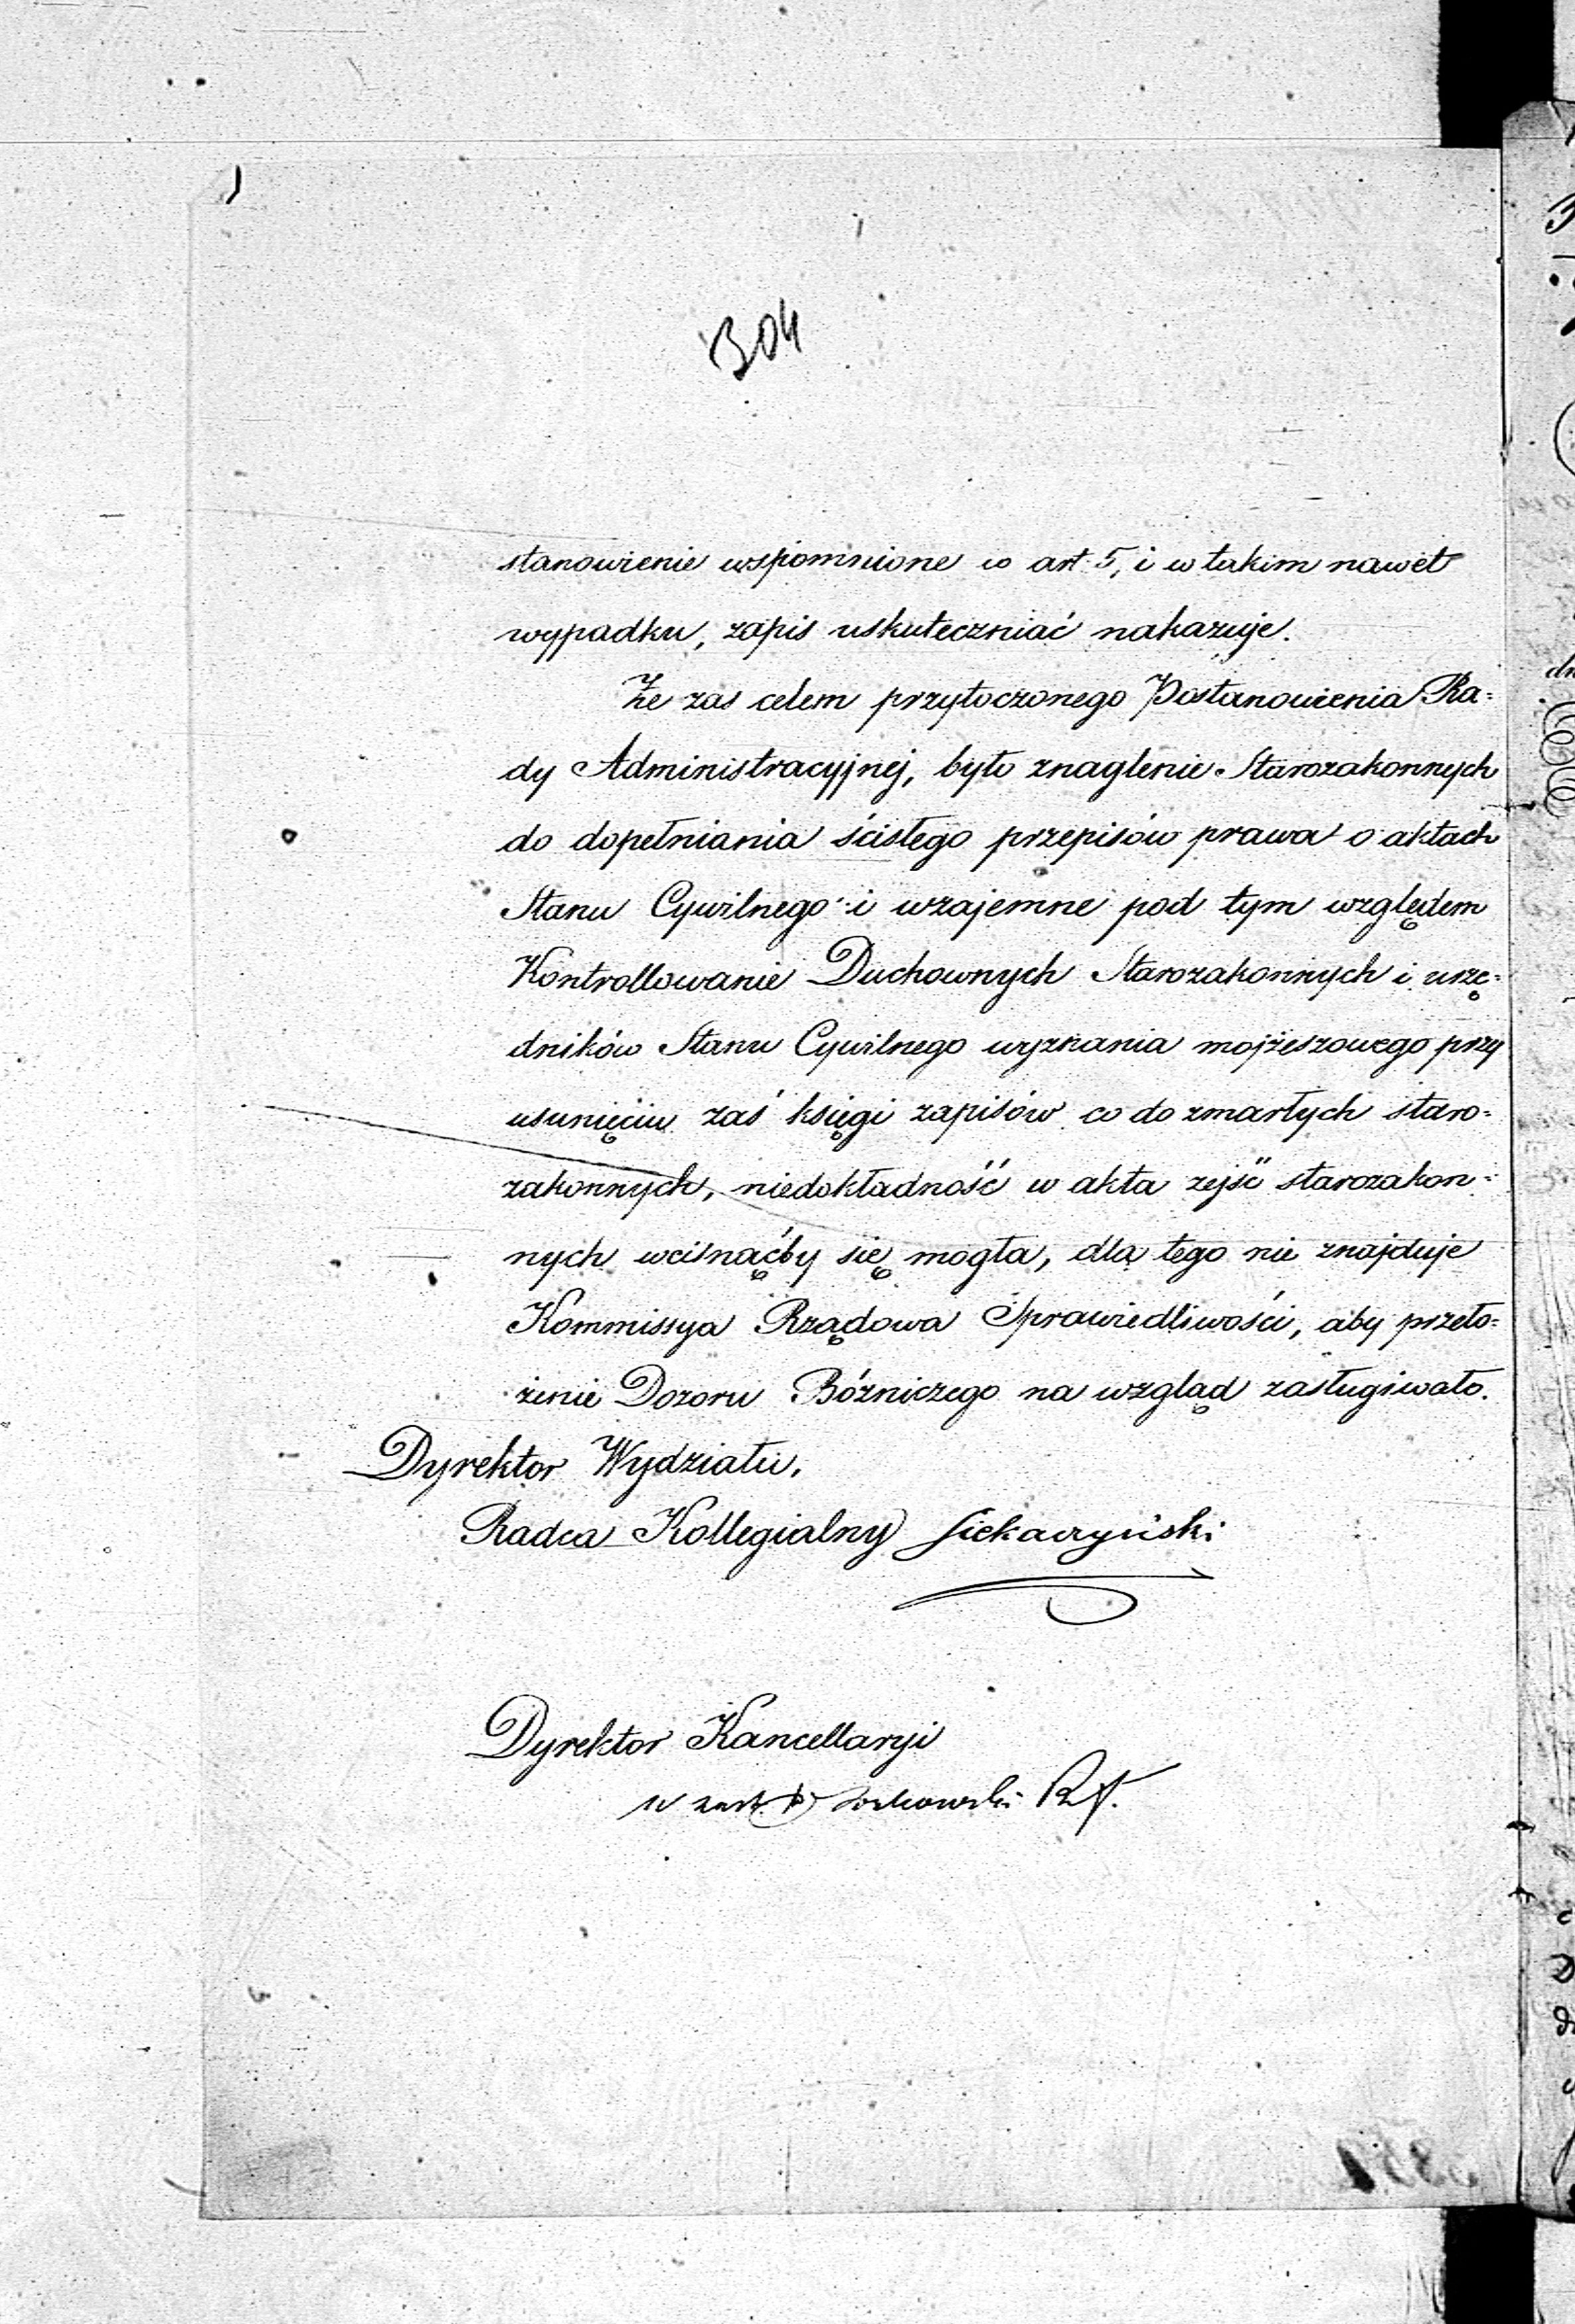 304
stanowienie wspomnione w art 5, i w takim nawet
wypadku, zapis uskuteczniać nakazuje.
Że zas celem przytoczonego Postanowienia Ra=
dy Administracyjnej, było znaglenie Starozakonnych
do dopełniania ścisłego przepisów prawa o aktach
Stanu Cywilnego i wzajemne pod tym względem
Kontrollowanie Duchownych Starozakonnych i urzę=
dników Stanu Cywilnego wyznania mojżeszowego przy
usunięciu zaś księgi zapisów co do zmarłych staro=
zakonnych, niedokładność w akta zejść starozakon=
nych wcisnąćby się mogła, dla tego nie znajduje
Kommissya Rządowa Sprawiedliwości, aby przeło=
żenie Dozoru Bóżniczego na wzgląd zasługiwało.
Dyrektor Wydziału,
Radca Kollegialny
Dyrektor Kancellaryi
w zast.